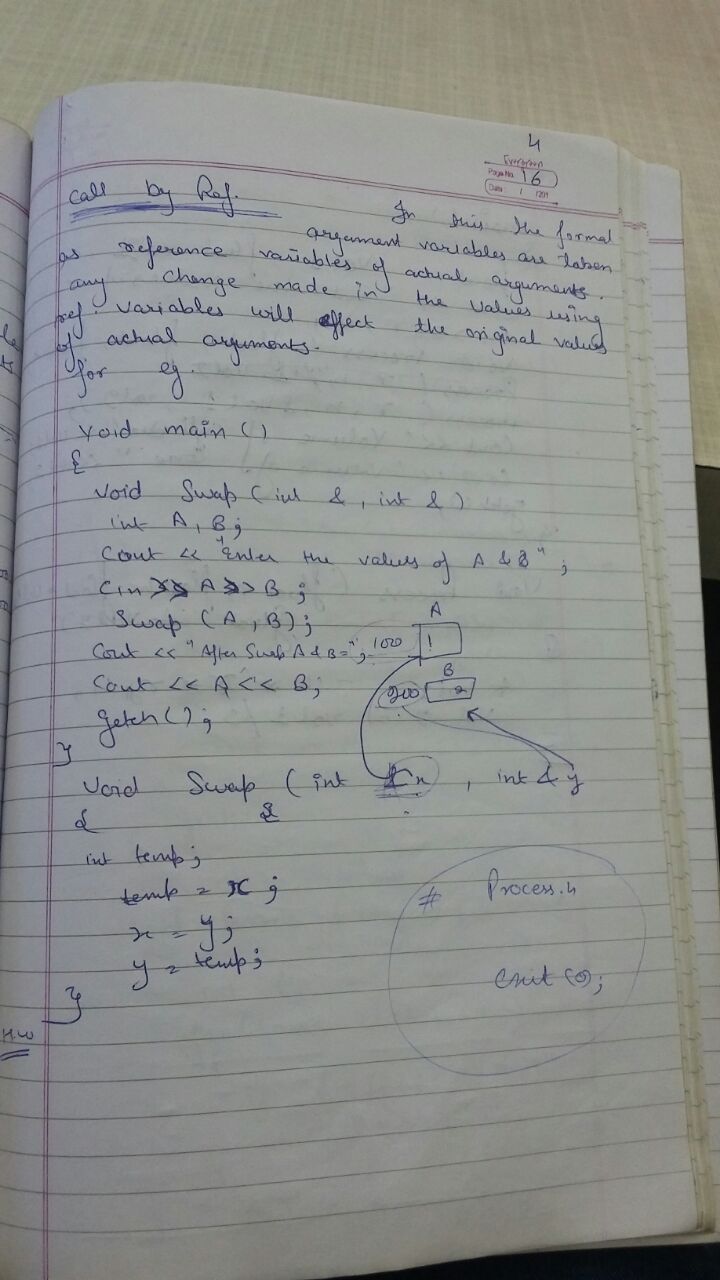 4
Evergreen
Page No. 16
Date: / /201
Call by Ref.
In this the formal
argument variables are taken
as reference variables of actual arguments.
any change made in the values using
ref. variables will effect the original values
of actual arguments.
for eg.
void main ()
{
void Swap (int &, int &)
int A, B;
Cout << "Enter the values of A & B";
Cin >> A >> B;
Swap (A, B);
Cout << "After Swap A & B=";
Cout << A << B;
getch();
}
A
1000 1
B
200 2
void Swap (int &x, int & y
{
int temp;
temp = x;
x = y;
y = temp;
}
# Process.h
exit (0);
H.W